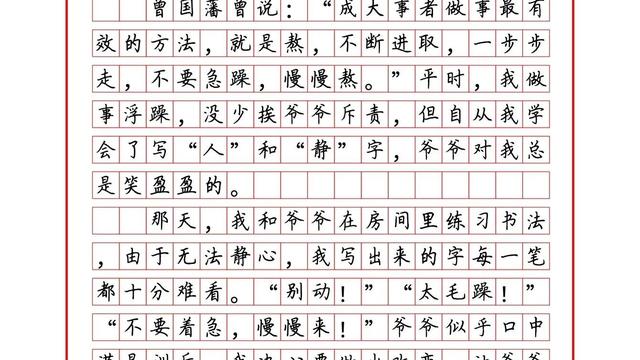 曾国藩曾说：“成大事者做事最有
效的方法，就是熬，不断进取，一步步
走，不要急躁，慢慢熬。”平时，我做
事浮躁，没少挨爷爷斥责，但自从我学
会了写“人”和“静”字，爷爷对我总
是笑盈盈的。
那天，我和爷爷在房间里练习书法
，由于无法静心，我写出来的字每一笔
都十分难看。“别动！”“太毛躁！”
“不要着急，慢慢来！”爷爷似乎口中